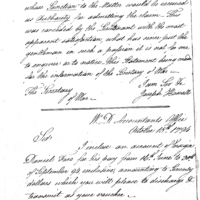 when Sanction to the Matter would be assumed
as Authority for admitting the claim. This
was received by the Lieutenant with the most
apparent satisfaction, what has now put the
gentleman on such a pursuit it is not to me
to enquire or to notice. This Statement being made
for the information of the Secretary of War.
I am Sir &c.
Joseph Howell
The Secretary
of War.
W. D. Accountants Office
October 15th 1794
Sir,
I enclose an account of Ensign
Daniel for his pay from 16th June to 30th
of September 94 inclusive, amounting to Seventy
dollars which you will please to discharge &
transmit as your voucher.